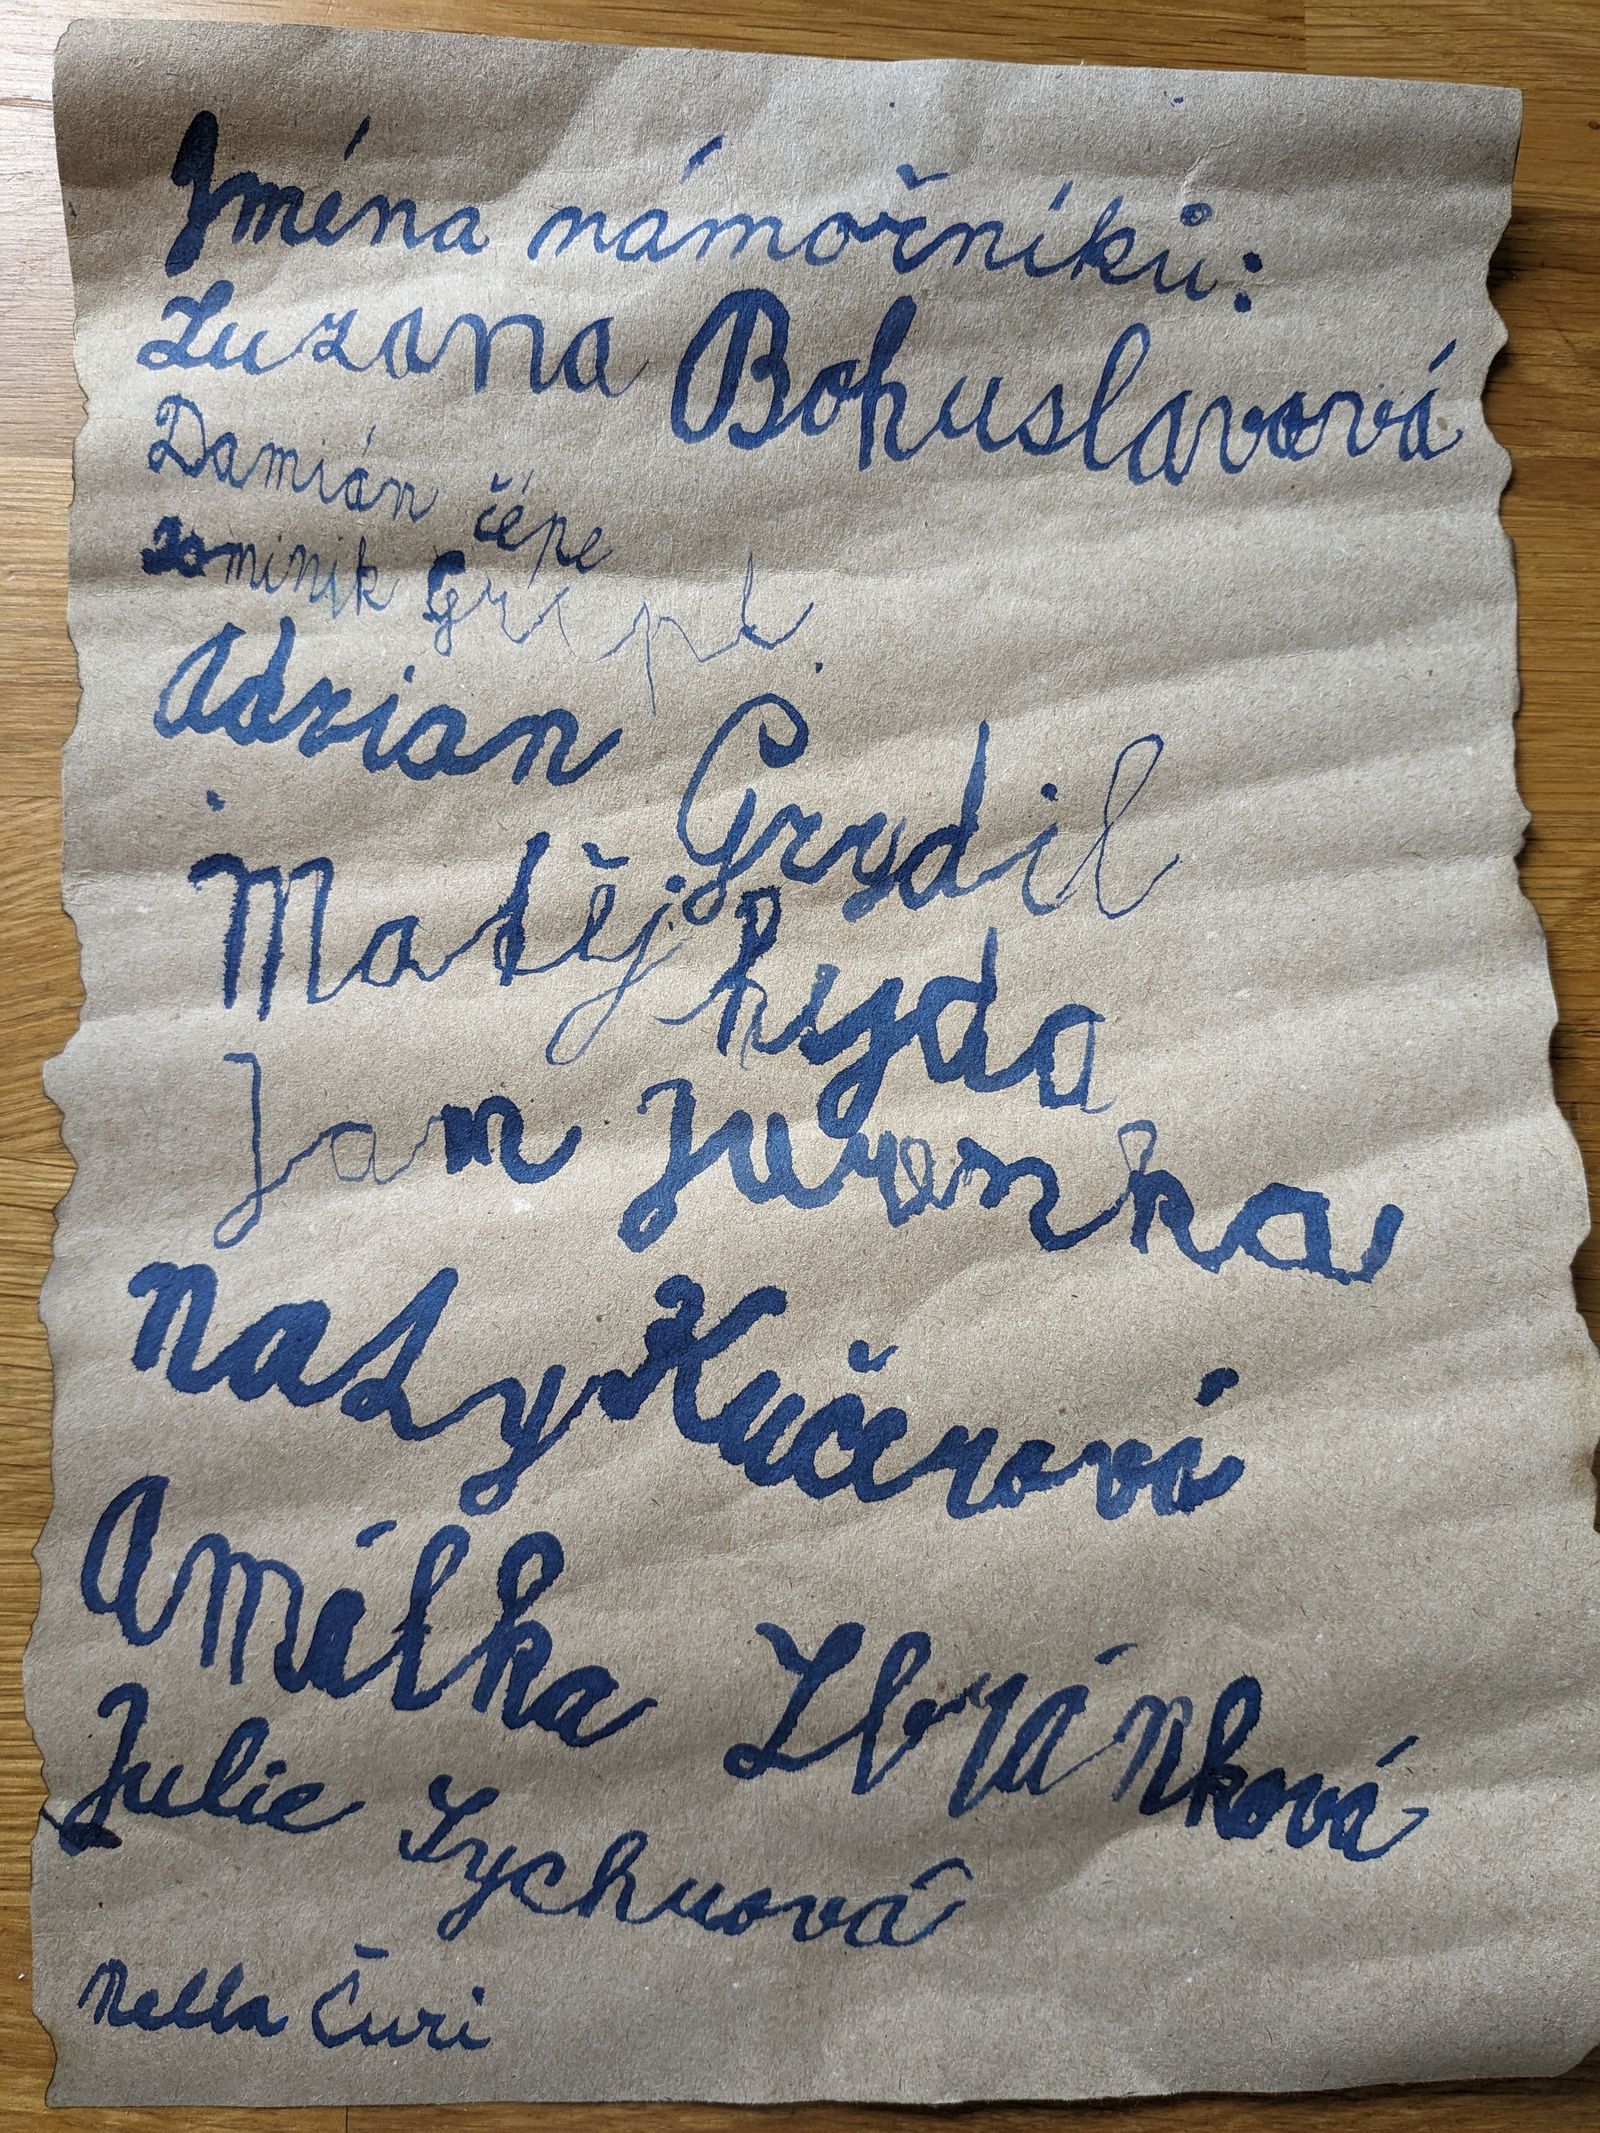 Jména námořníků:
Zuzana Bohuslavová
Damián čépe
Dominik
Adrian Grydil
Matěj hyda
Jan Juranka
Naty Kučerová
Amálka Zbránková
Julie Sychrová
Nella Čuri